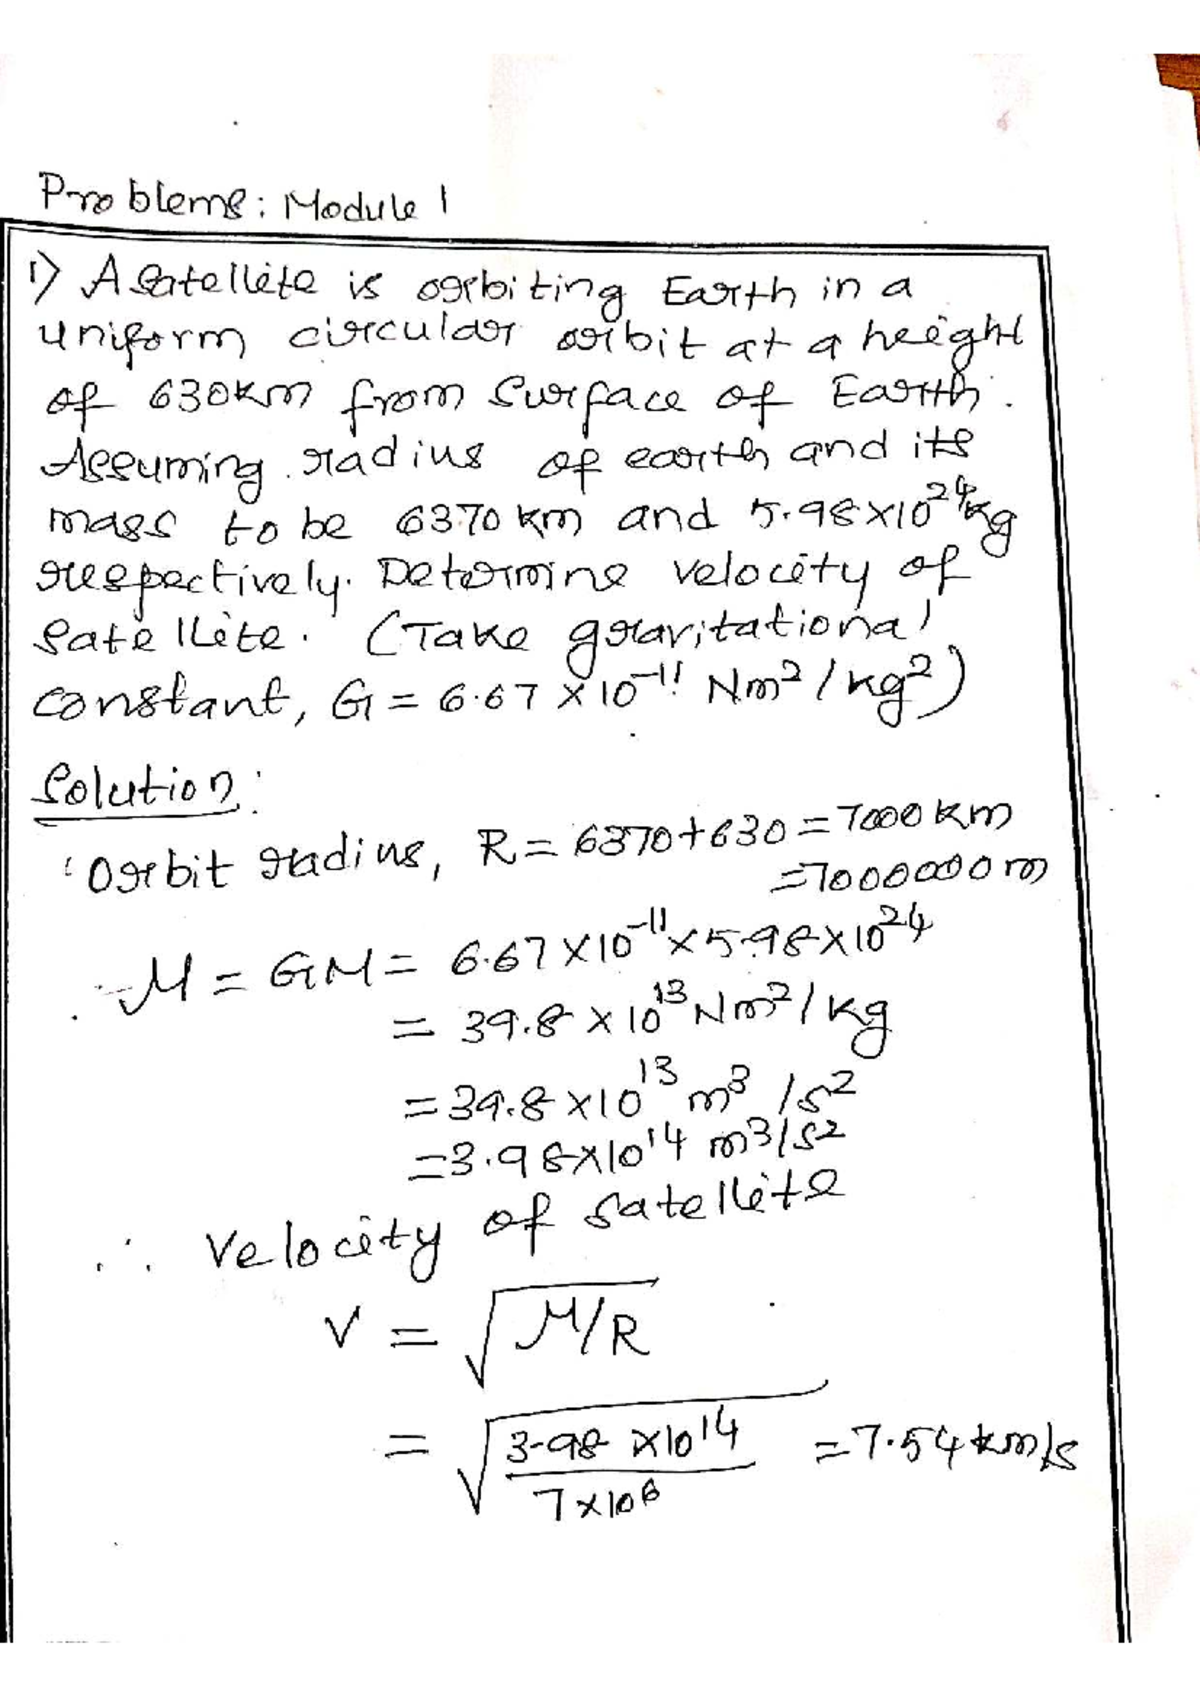 Problems: Module 1
1) A satellite is orbiting Earth in a
uniform circular orbit at a height
of 630km from Surface of Earth.
Assuming radius of earth and its
mass to be 6370 km and 5.98×10²⁴kg
respectively. Determine velocity of
Satellite. (Take gravitational
constant, G = 6.67 × 10⁻¹¹ Nm² / kg²)
Solution:
Orbit radius, R = 6370+630 = 7000 km
= 7000000 m
∴ μ = GM = 6.67 ×10⁻¹¹ × 5.98×10²⁴
= 39.8 × 10¹³ Nm² / kg
= 39.8 ×10¹³ m³ /s²
= 3.98×10¹⁴ m³/s²
∴ Velocity of satellite
V = √μ/R
= √3.98 ×10¹⁴ / 7 ×10⁶ = 7.54 km/s